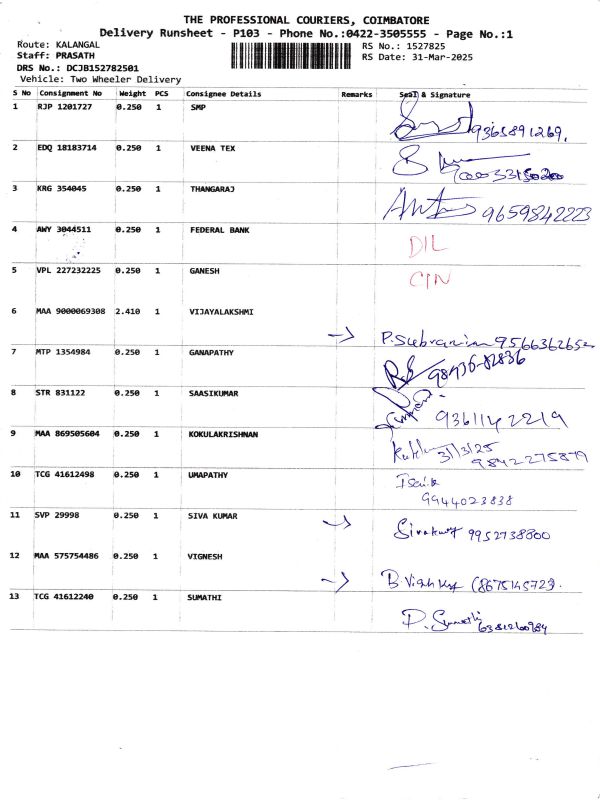 THE PROFESSIONAL COURIERS, COIMBATORE
Delivery Runsheet - P103 - Phone No.:0422-3505555 - Page No.:1
Route: KALANGAL
RS No.: 1527825
Staff: PRASATH
RS Date: 31-Mar-2025
DRS No.: DCJB152782501
Vehicle: Two Wheeler Delivery
S No Consignment No Weight PCS Consignee Details Remarks Seal & Signature
1 RJP 1201727 0.250 1 SMP
9365891269.
2 EDQ 18183714 0.250 1 VEENA TEX
3 KRG 354045 0.250 1 THANGARAJ
9659842223
4 AWY 3044511 0.250 1 FEDERAL BANK
DIL
5 VPL 227232225 0.250 1 GANESH
CIN
6 MAA 9000069308 2.410 1 VIJAYALAKSHMI
7 MTP 1354984 0.250 1 GANAPATHY
8 STR 831122 0.250 1 SAASIKUMAR
9361142219
9 MAA 869505604 0.250 1 KOKULAKRISHNAN
31/3/25
9842275879
10 TCG 41612498 0.250 1 UMAPATHY
9944023838
11 SVP 29998 0.250 1 SIVA KUMAR
9952738800
12 MAA 575754486 0.250 1 VIGNESH
(8675145723.
13 TCG 41612240 0.250 1 SUMATHI